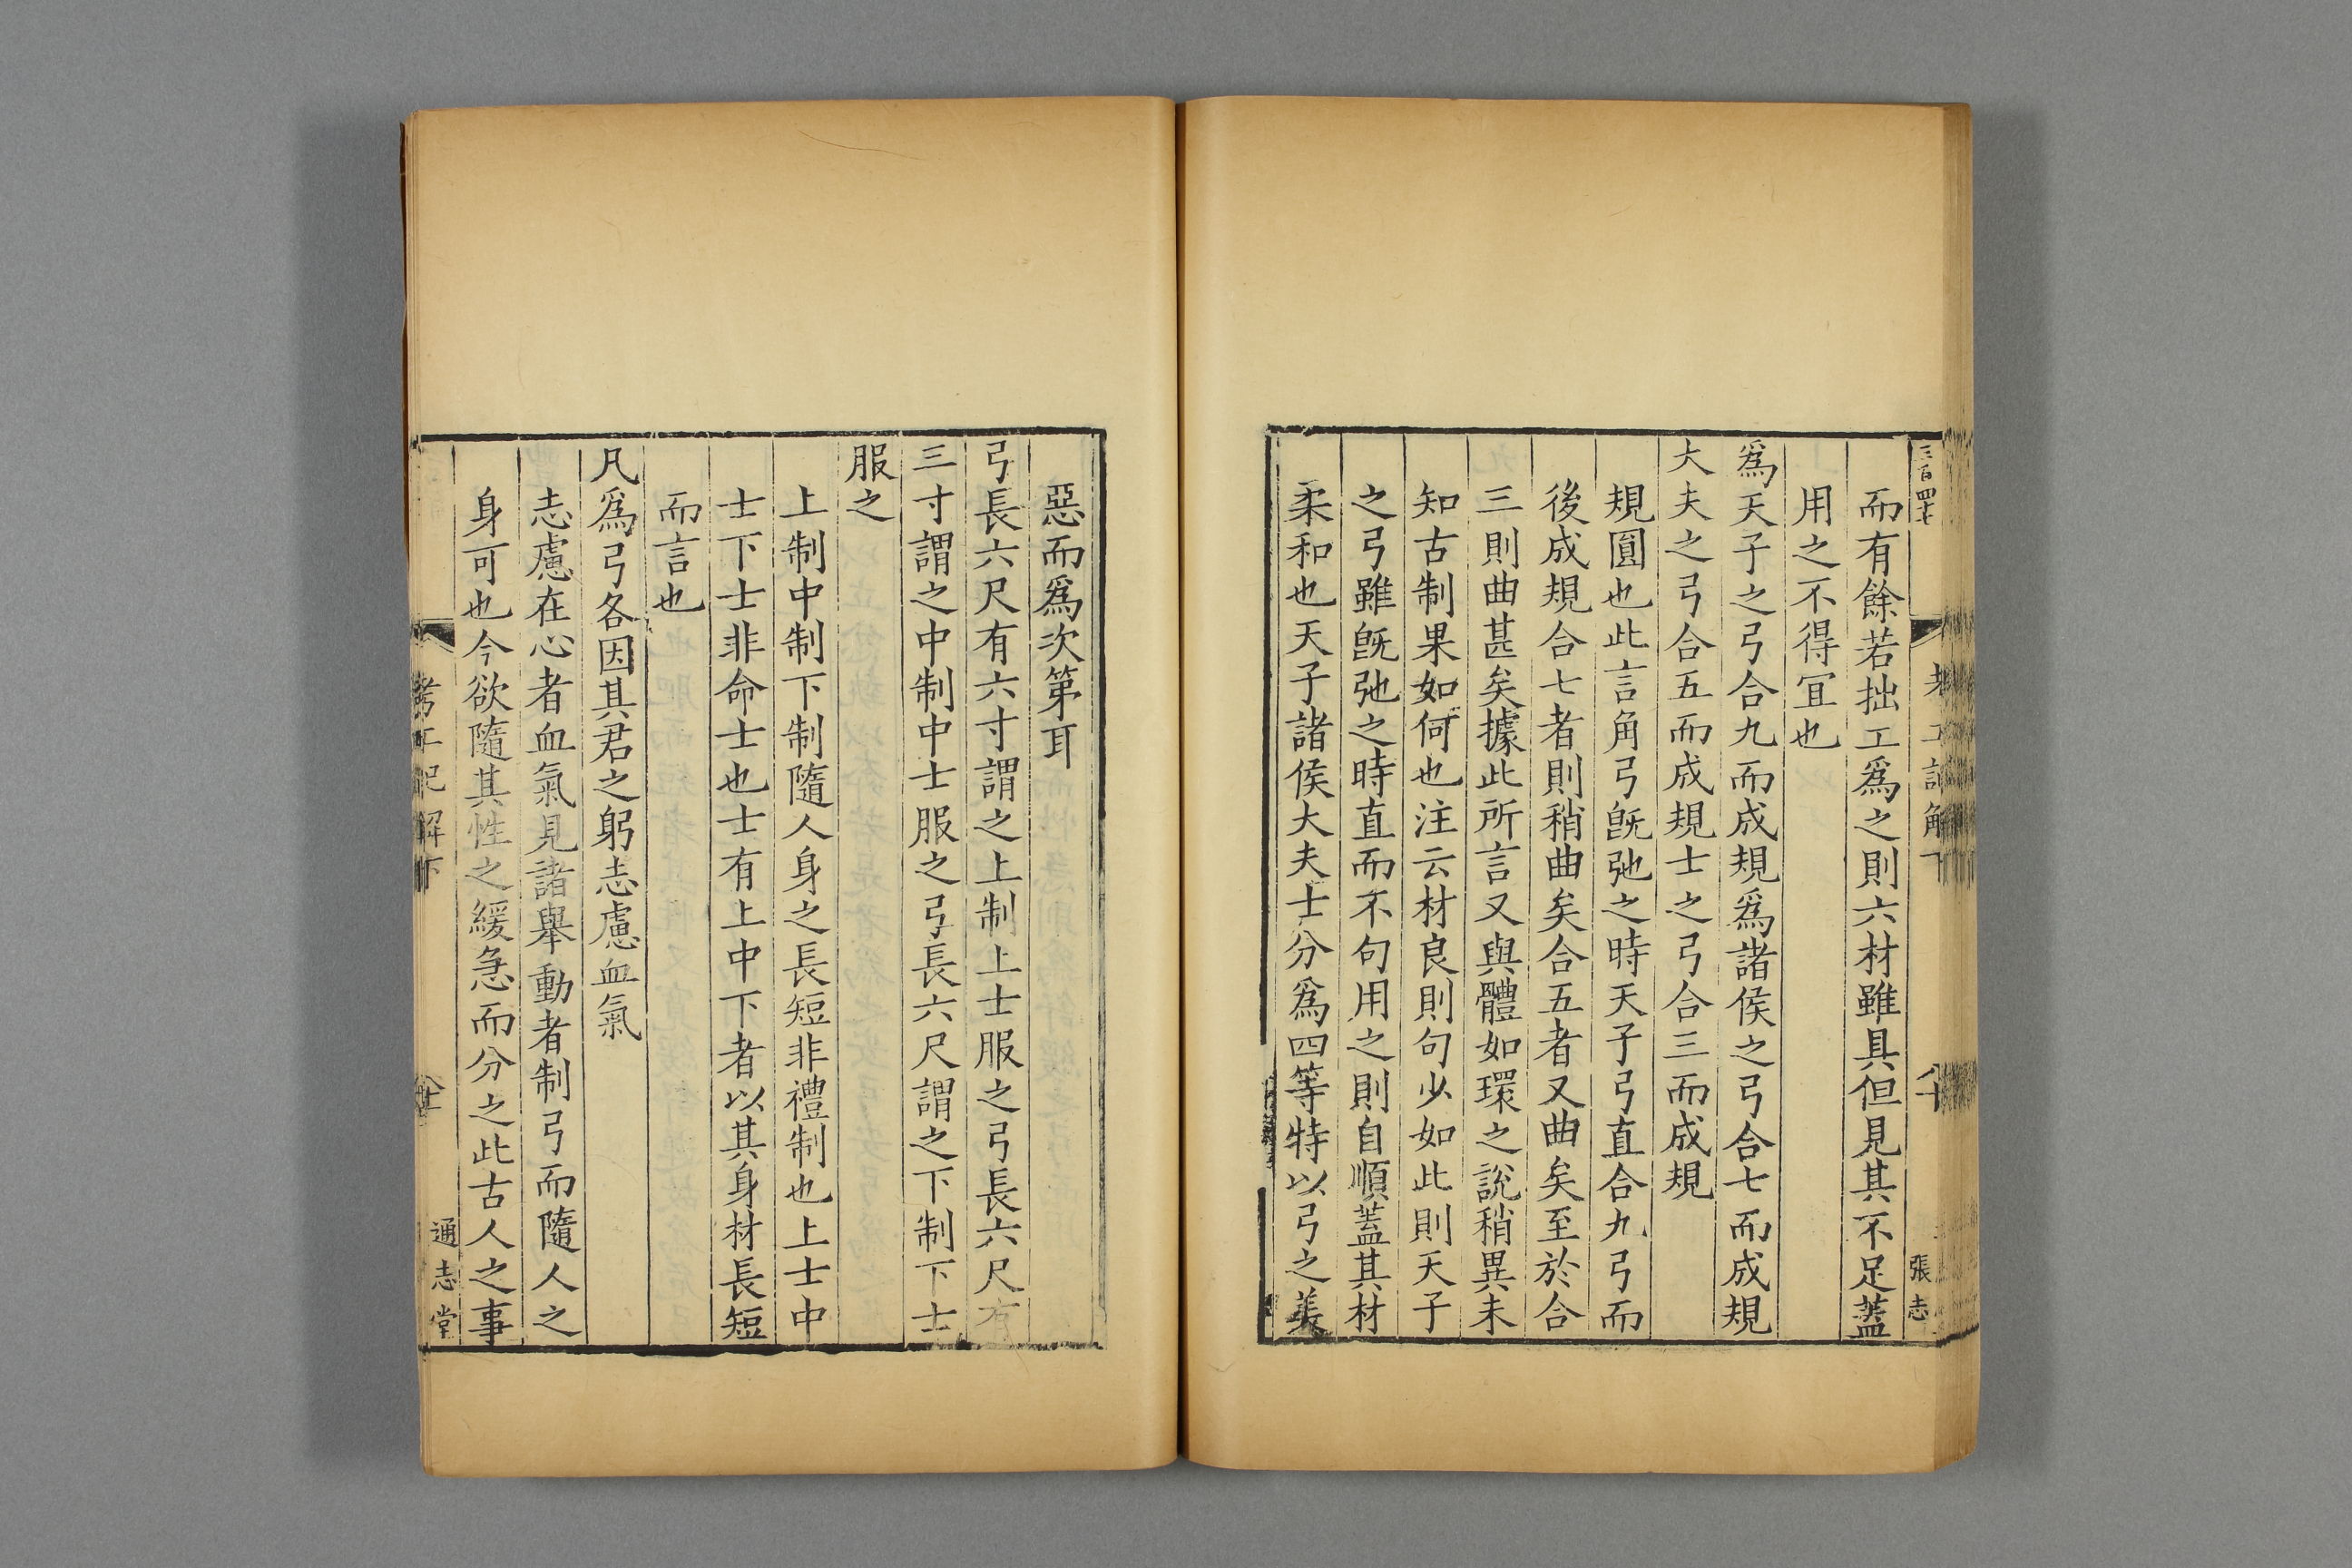 三百四十七
而有餘若拙工爲之則六材雖具但見其不足蓋
用之不得冝也
爲天子之弓合九而成規爲諸侯之弓合七而成規
大夫之弓合五而成規士之弓合三而成規
規圓也此言角弓旣弛之時天子弓直合九弓而
後成規合七者則稍曲矣合五者又曲矣至於合
三則曲甚矣據此所言又與體如環之說稍異未
知古制果如何也注云材良則句少如此則天子
之弓雖旣弛之時直而不句用之則自順蓋其材
柔和也天子諸侯大夫士分爲四等特以弓之美
惡而爲次第耳
弓長六尺有六寸謂之上制上士服之弓長六尺有
三寸謂之中制中士服之弓長六尺謂之下制下士
服之
上制中制下制隨人身之長短非禮制也上士中
士下士非命士也士有上中下者以其身材長短
而言也
凡爲弓各因其君之躬志慮血氣
志慮在心者血氣見諸舉動者制弓而隨人之
身可也今欲隨其性之緩急而分之此古人之事
考工記解下
張志
通志堂